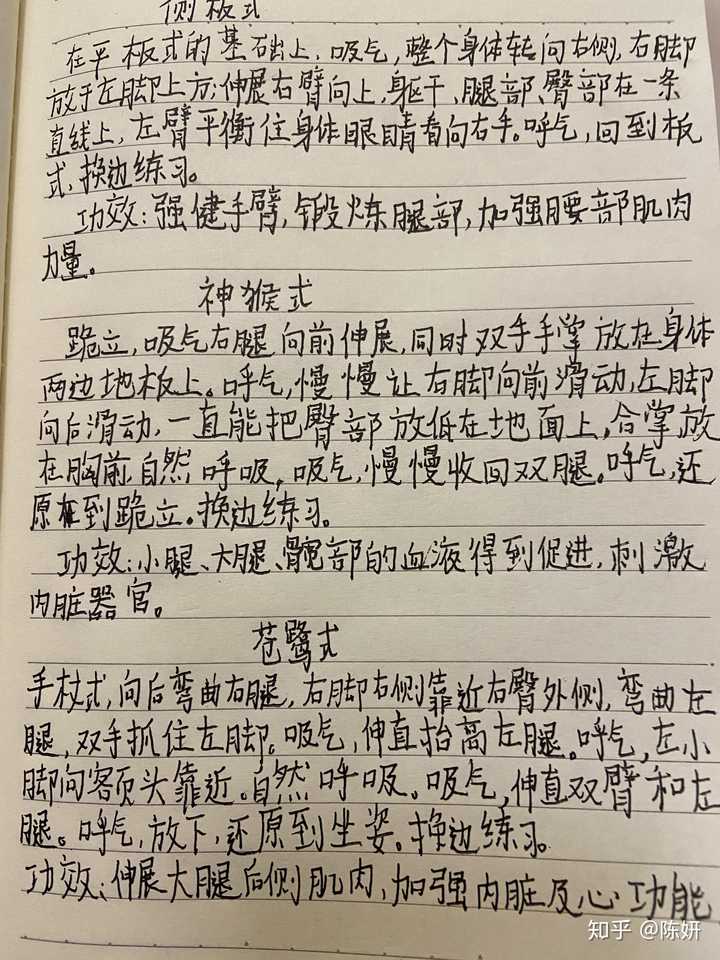 侧板式
在平板式的基础上，吸气，整个身体转向右侧，右脚
放于左脚上方；伸展右臂向上，身区干、腿部、臀部在一条
直线上，左臂平衡住身体眼睛看向右手。呼气，回到板
式，换边练习。
功效：强健手臂，锻炼腿部，加强腰部肌肉
力量。
神猴式
跪立，吸气右腿向前伸展，同时双手手掌放在身体
两边地板上。呼气，慢慢让右脚向前滑动，左脚
向后滑动，一直能把臀部放低在地面上，合掌放
在胸前，自然呼吸。吸气，慢慢收回双腿。呼气，还
原到跪立。换边练习。
功效：小腿、大腿、髋部的血液得到促进，刺激
内脏器官。
苍鹭式
手杖式，向后弯曲右腿，右脚右侧靠近右臀外侧，弯曲左
腿，双手抓住左脚。吸气，伸直抬高左腿。呼气，左小
脚向额头靠近。自然呼吸。吸气，伸直双臂和左
腿。呼气，放下，还原到坐姿。换边练习。
功效：伸展大腿后侧肌肉，加强内脏及心功能
知乎 @陈妍